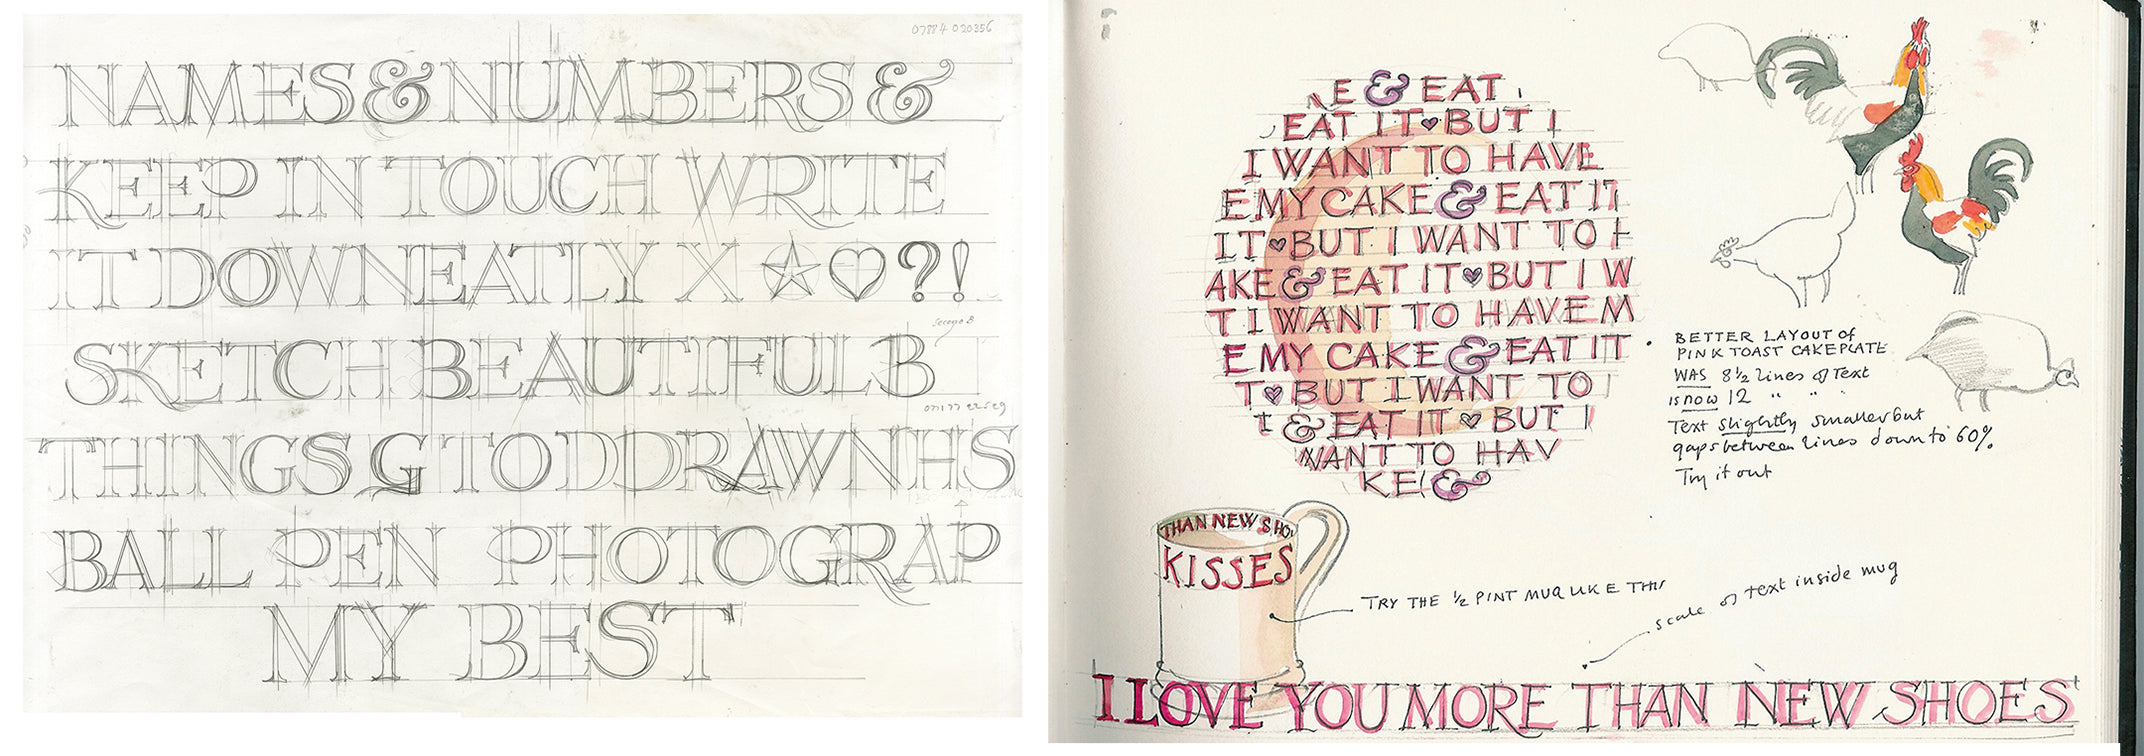 07884 020356
NAMES & NUMBERS &
KEEP IN TOUCH WRITE
IT DOWNEATLY X ☆ ♡ ? !
second B
SKETCH BEAUTIFUL B
THINGS G TO DDRAWNHS
BALL PEN PHOTOGRAP
MY BEST
E & EAT
EAT IT ♥ BUT I
I WANT TO HAVE
E MY CAKE & EAT IT
IT ♥ BUT I WANT TO H
AKE & EAT IT ♥ BUT I W
T I WANT TO HAVE M
E MY CAKE & EAT IT
T ♥ BUT I WANT TO
T & EAT IT ♥ BUT I
WANT TO HAV
KE &
BETTER LAYOUT of
PINK TOAST CAKEPLATE
WAS 8½ lines of Text
is now 12 " "
Text slightly smaller but
gaps between lines down to 60%.
Try it out
THAN NEW SHO
KISSES
TRY THE ½ PINT MUG LIKE THIS
scale of text inside mug
I LOVE YOU MORE THAN NEW SHOES